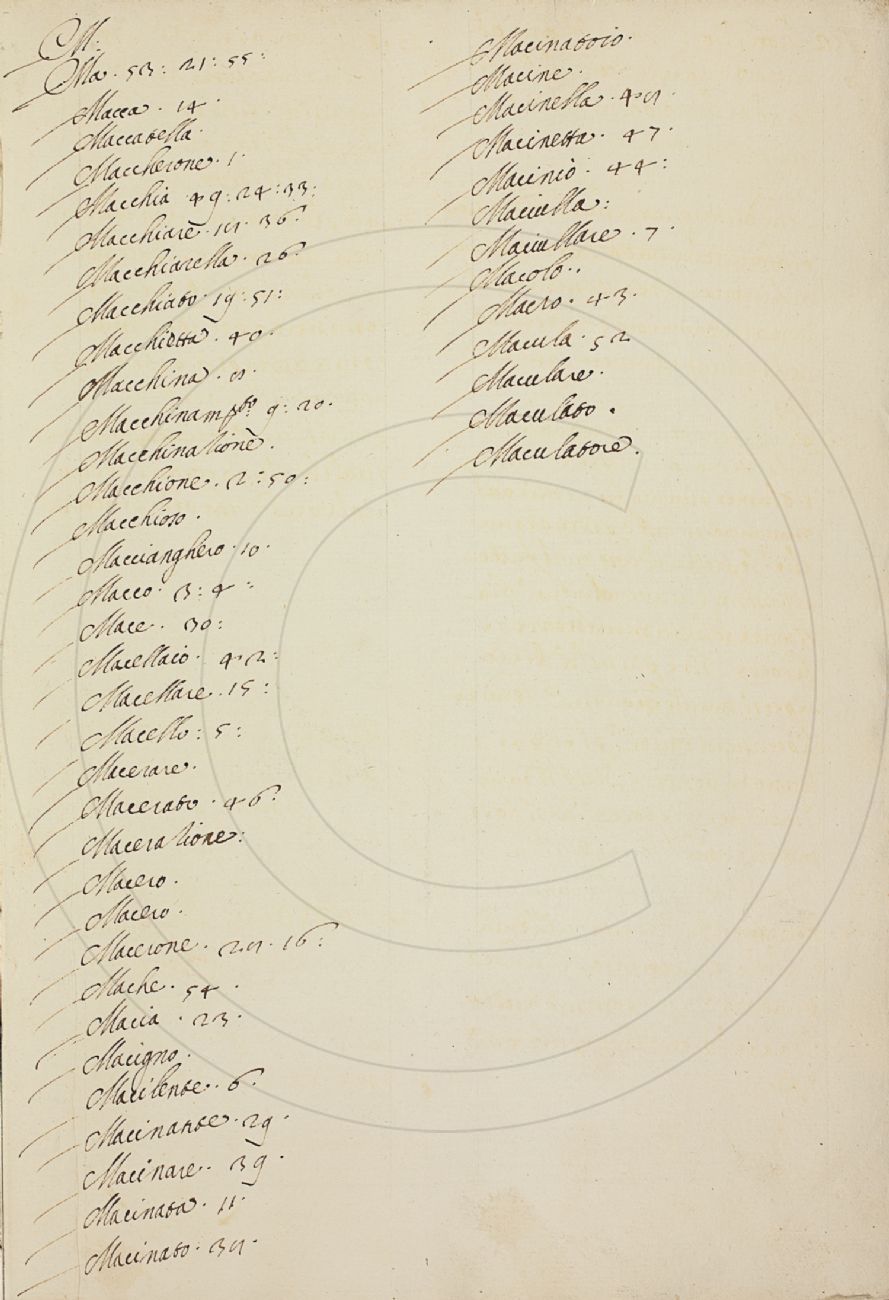 M.
Ma. 53: 21: 55:
Macca. 14.
Maccatella.
Maccherone. 1.
Macchia 49: 24: 33:
Macchiare. 36:
Macchiarella. 26:
Macchiato. 19: 51:
Macchietta. 40.
Macchina.
Macchinamto. 9: 20.
Macchinatione.
Macchione. 2: 50:
Macchioso.
Maccianghero. 10.
Macco. 3: 4:
Mace. 30:
Macellaio. 42:
Macellare. 15:
Macello: 5:
Macerare.
Macerato. 46:
Maceratione:
Macero.
Macero.
Macerone. 16:
Mache. 54.
Macia. 23.
Macigno.
Macilente. 6.
Macinante. 29.
Macinare. 39.
Macinata. 11.
Macinato.
Macinatoio.
Macine.
Macinella.
Macinetta. 47.
Macinio. 44:
Maciulla:
Maciullare. 7.
Macolo.
Macro. 43.
Macula. 52
Maculare.
Maculato.
Maculatore.